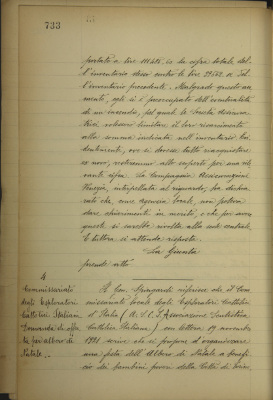 733
portato a lire 111.425, es la cifra totale del-
l'inventario stesso contro le lire 29562 di
l'inventario precedente. Malgrado questo au-
mento, egli si è preoccupato dell'eventualità
di un incendio, pel quale le Società
volessero limitare il loro risarcimento
alla somma indicata nell'inventario
ove si dovesse tutto riacquistare
ex novo, resteremmo allo scoperto per una rile-
vante cifra. La Compagnia Assicurazioni
Venezia, interpellata al riguardo, ha dichia-
rato che, come agenzia locale, non poteva
dare chiarimenti in merito, e che per avere
questi si sarebbe rivolta alla sede centrale.
E tuttora si attende risposta.
La Giunta
prende atto
4
Commissariato
degli Esploratori
Cattolici Italiani
Domanda di offer-
ta per albero di
Natale..
Il Gen. Spingardi riferisce che il Com-
missariato locale degli Esploratori Cattolici
d'Italia (A.S.C.I. Associazione Scoutistica
Cattolica Italiana) con lettera 19 novembre
1931 scrive che si propone d'organizzare
una festa dell'Albero di Natale a benefi-
cio dei bambini poveri della Città di